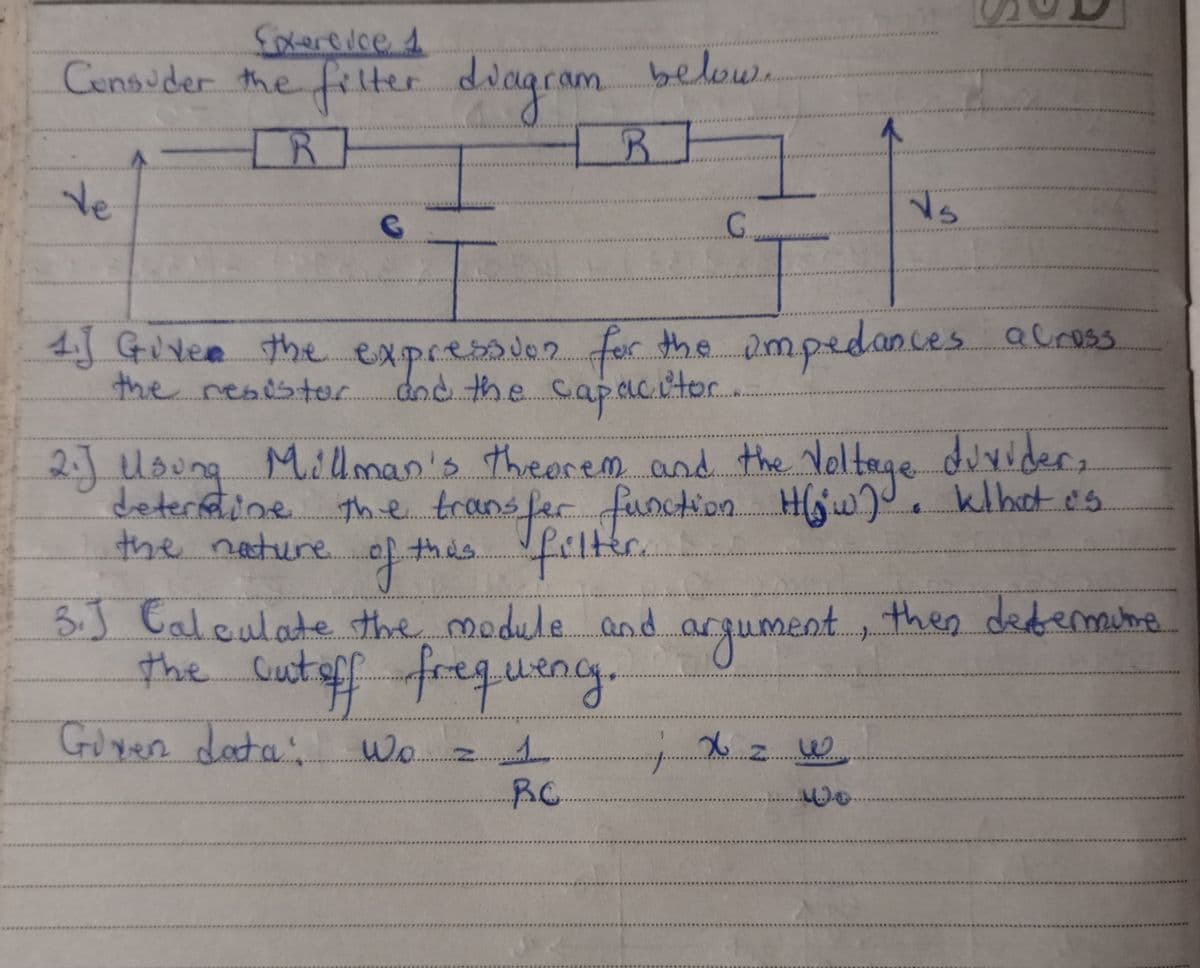 Exercice 1
Consider the filter diagram below.
R
R
Ve
C
C
Vs
1.] Given the expression for the impedances across
the resistor and the capacitor.
2.] Using Millman's theorem and the Voltage divider,
determine the transfer function H(jw). What is
the nature of this filter.
3.] Calculate the module and argument, then determine
the cutoff frequency.
Given data: Wo = 1 ; x = w
RC
wo